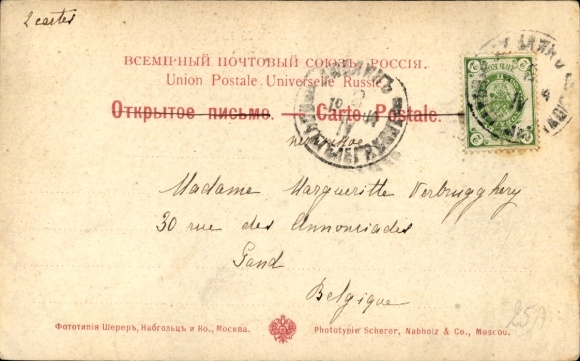 2 cartes
ВСЕМІРНЫЙ ПОЧТОВЫЙ СОЮЗЪ. РОССІЯ.
Union Postale Universelle Russie
Открытое письмо. — Carte Postale.
печатное
Madame Margueritte Verbrugghery
30 rue des Annonciades
Gand
Belgique
25A
Фототипія Шереръ, Набгольцъ и Ко., Москва.
Phototypie Scherer, Nabholz & Co., Moscou.